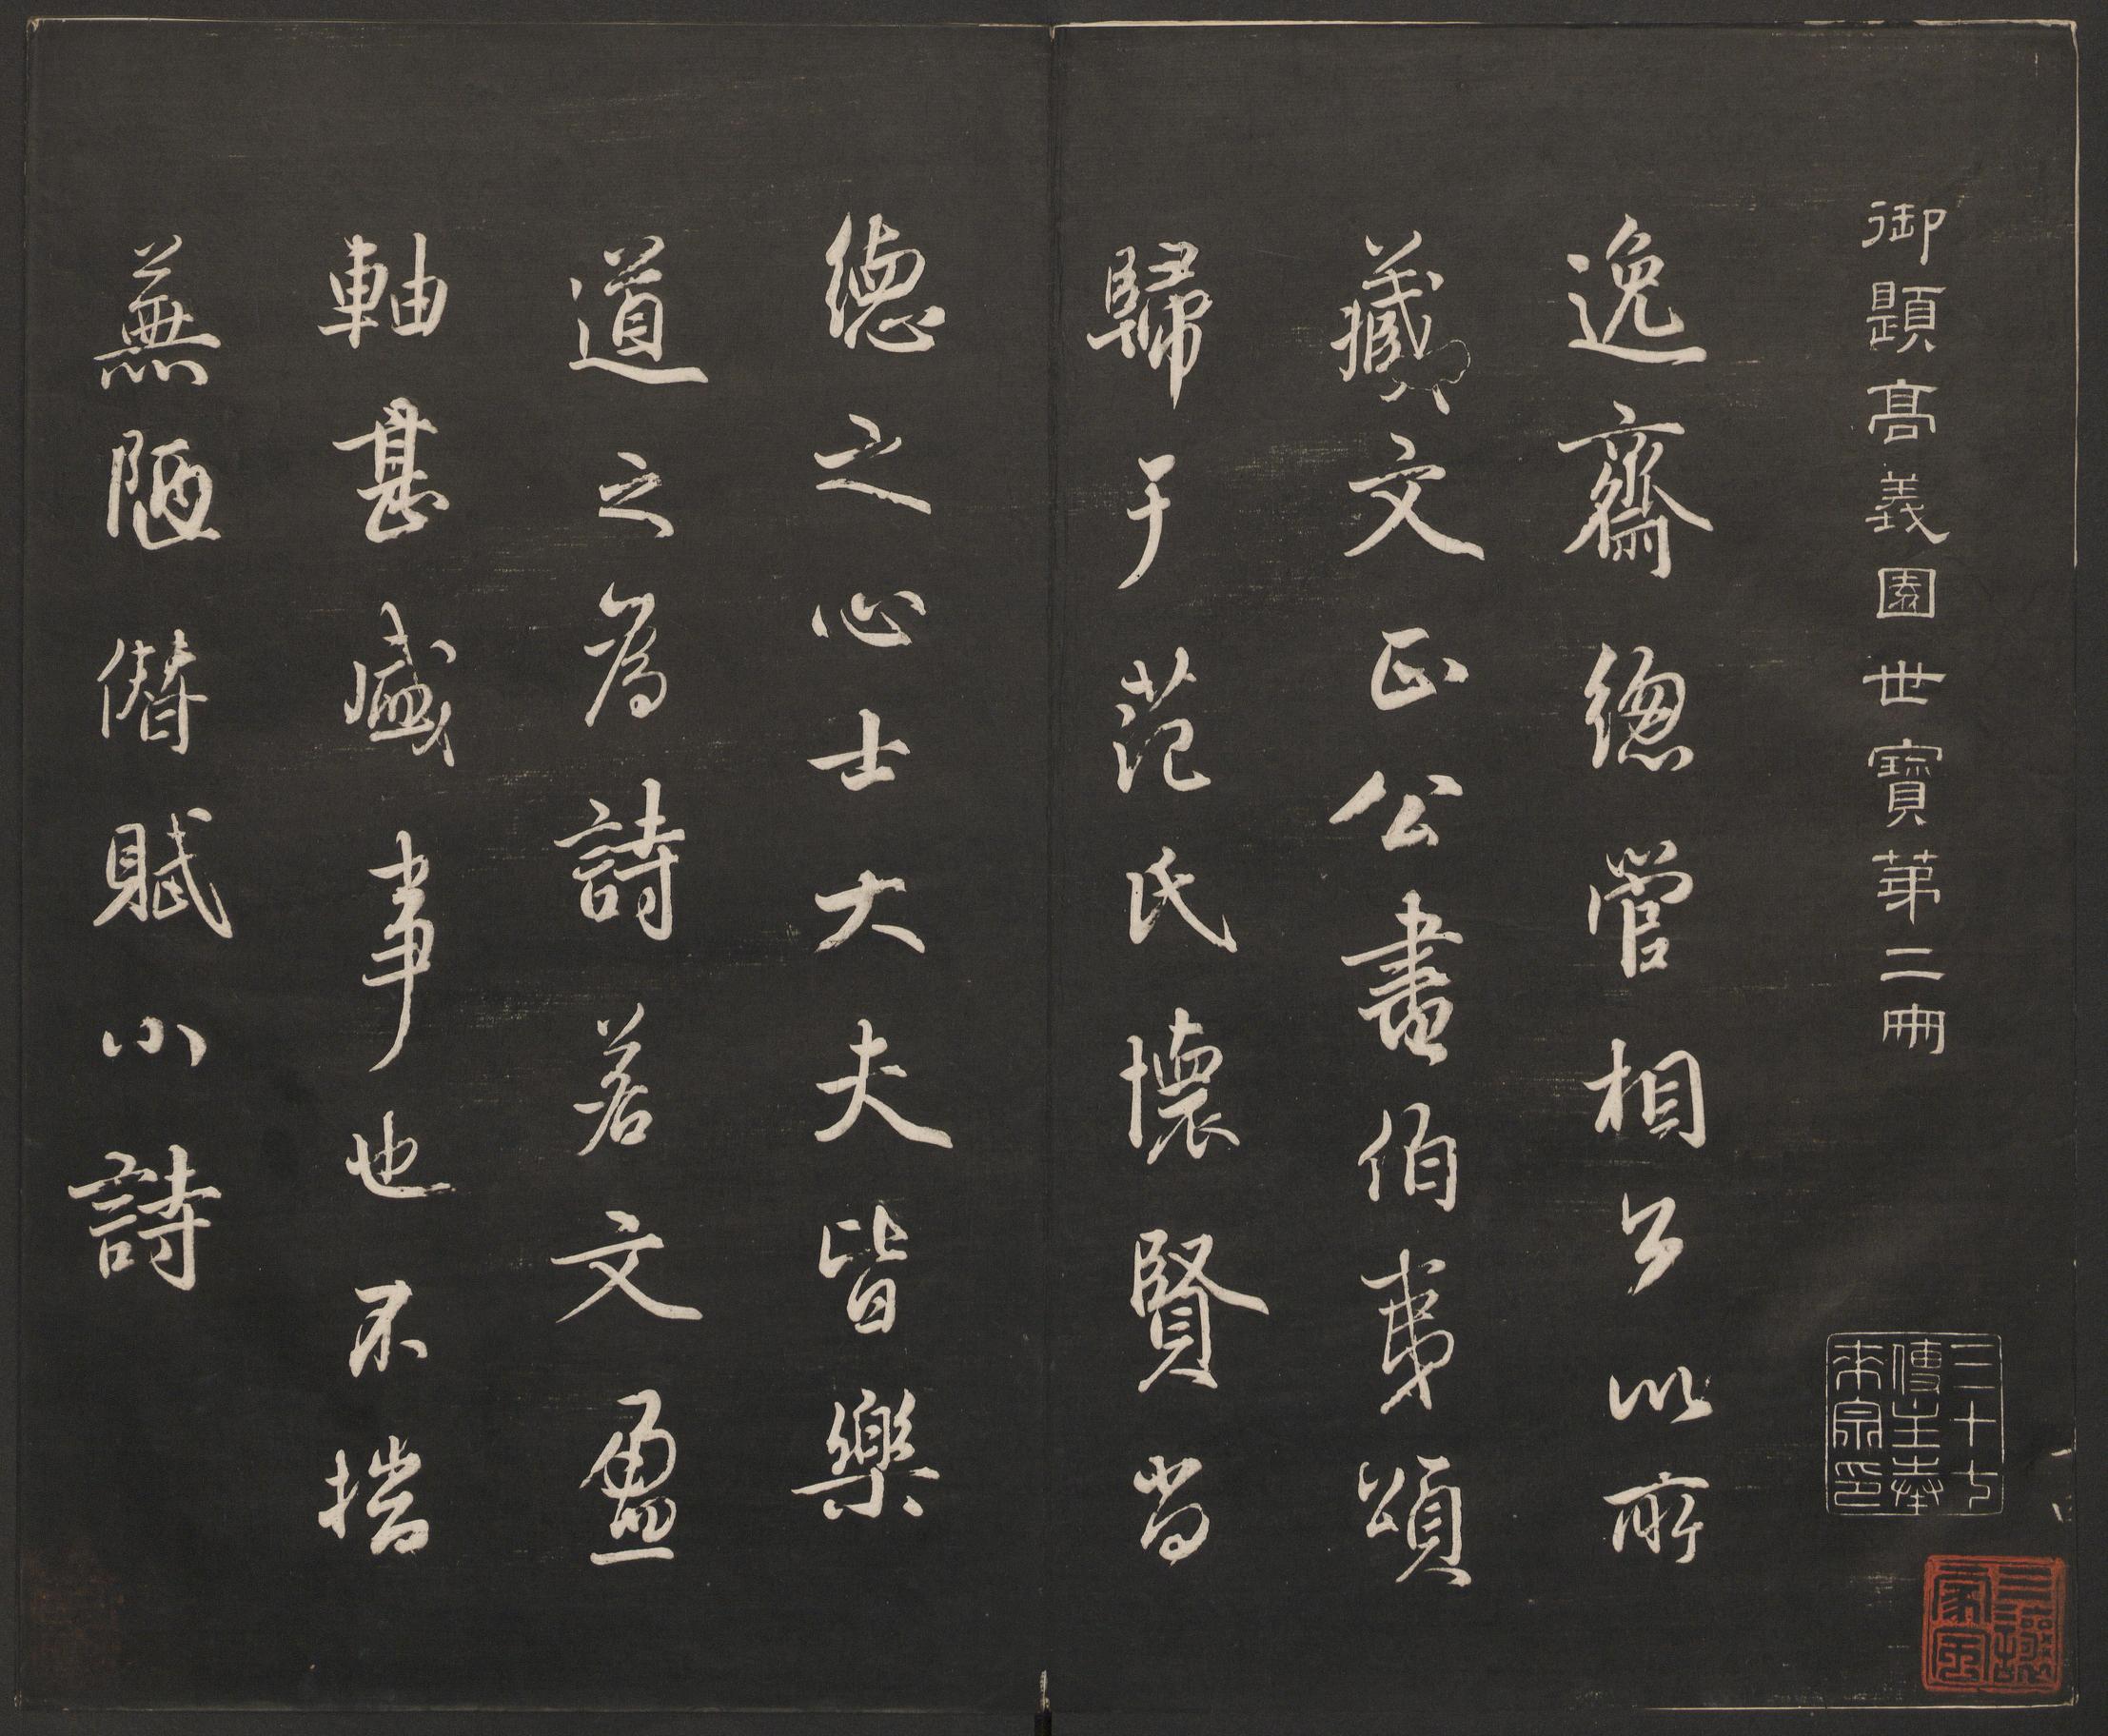 御題高義園世寶第二冊
三十七傳主奉來宗印
三讓家風
逸齋總管相公以所
藏文正公書伯夷頌
歸于范氏懷賢尚
德之心士大夫皆樂
道之為詩若文盈
軸甚盛事也不揣
蕪陋僭賦小詩